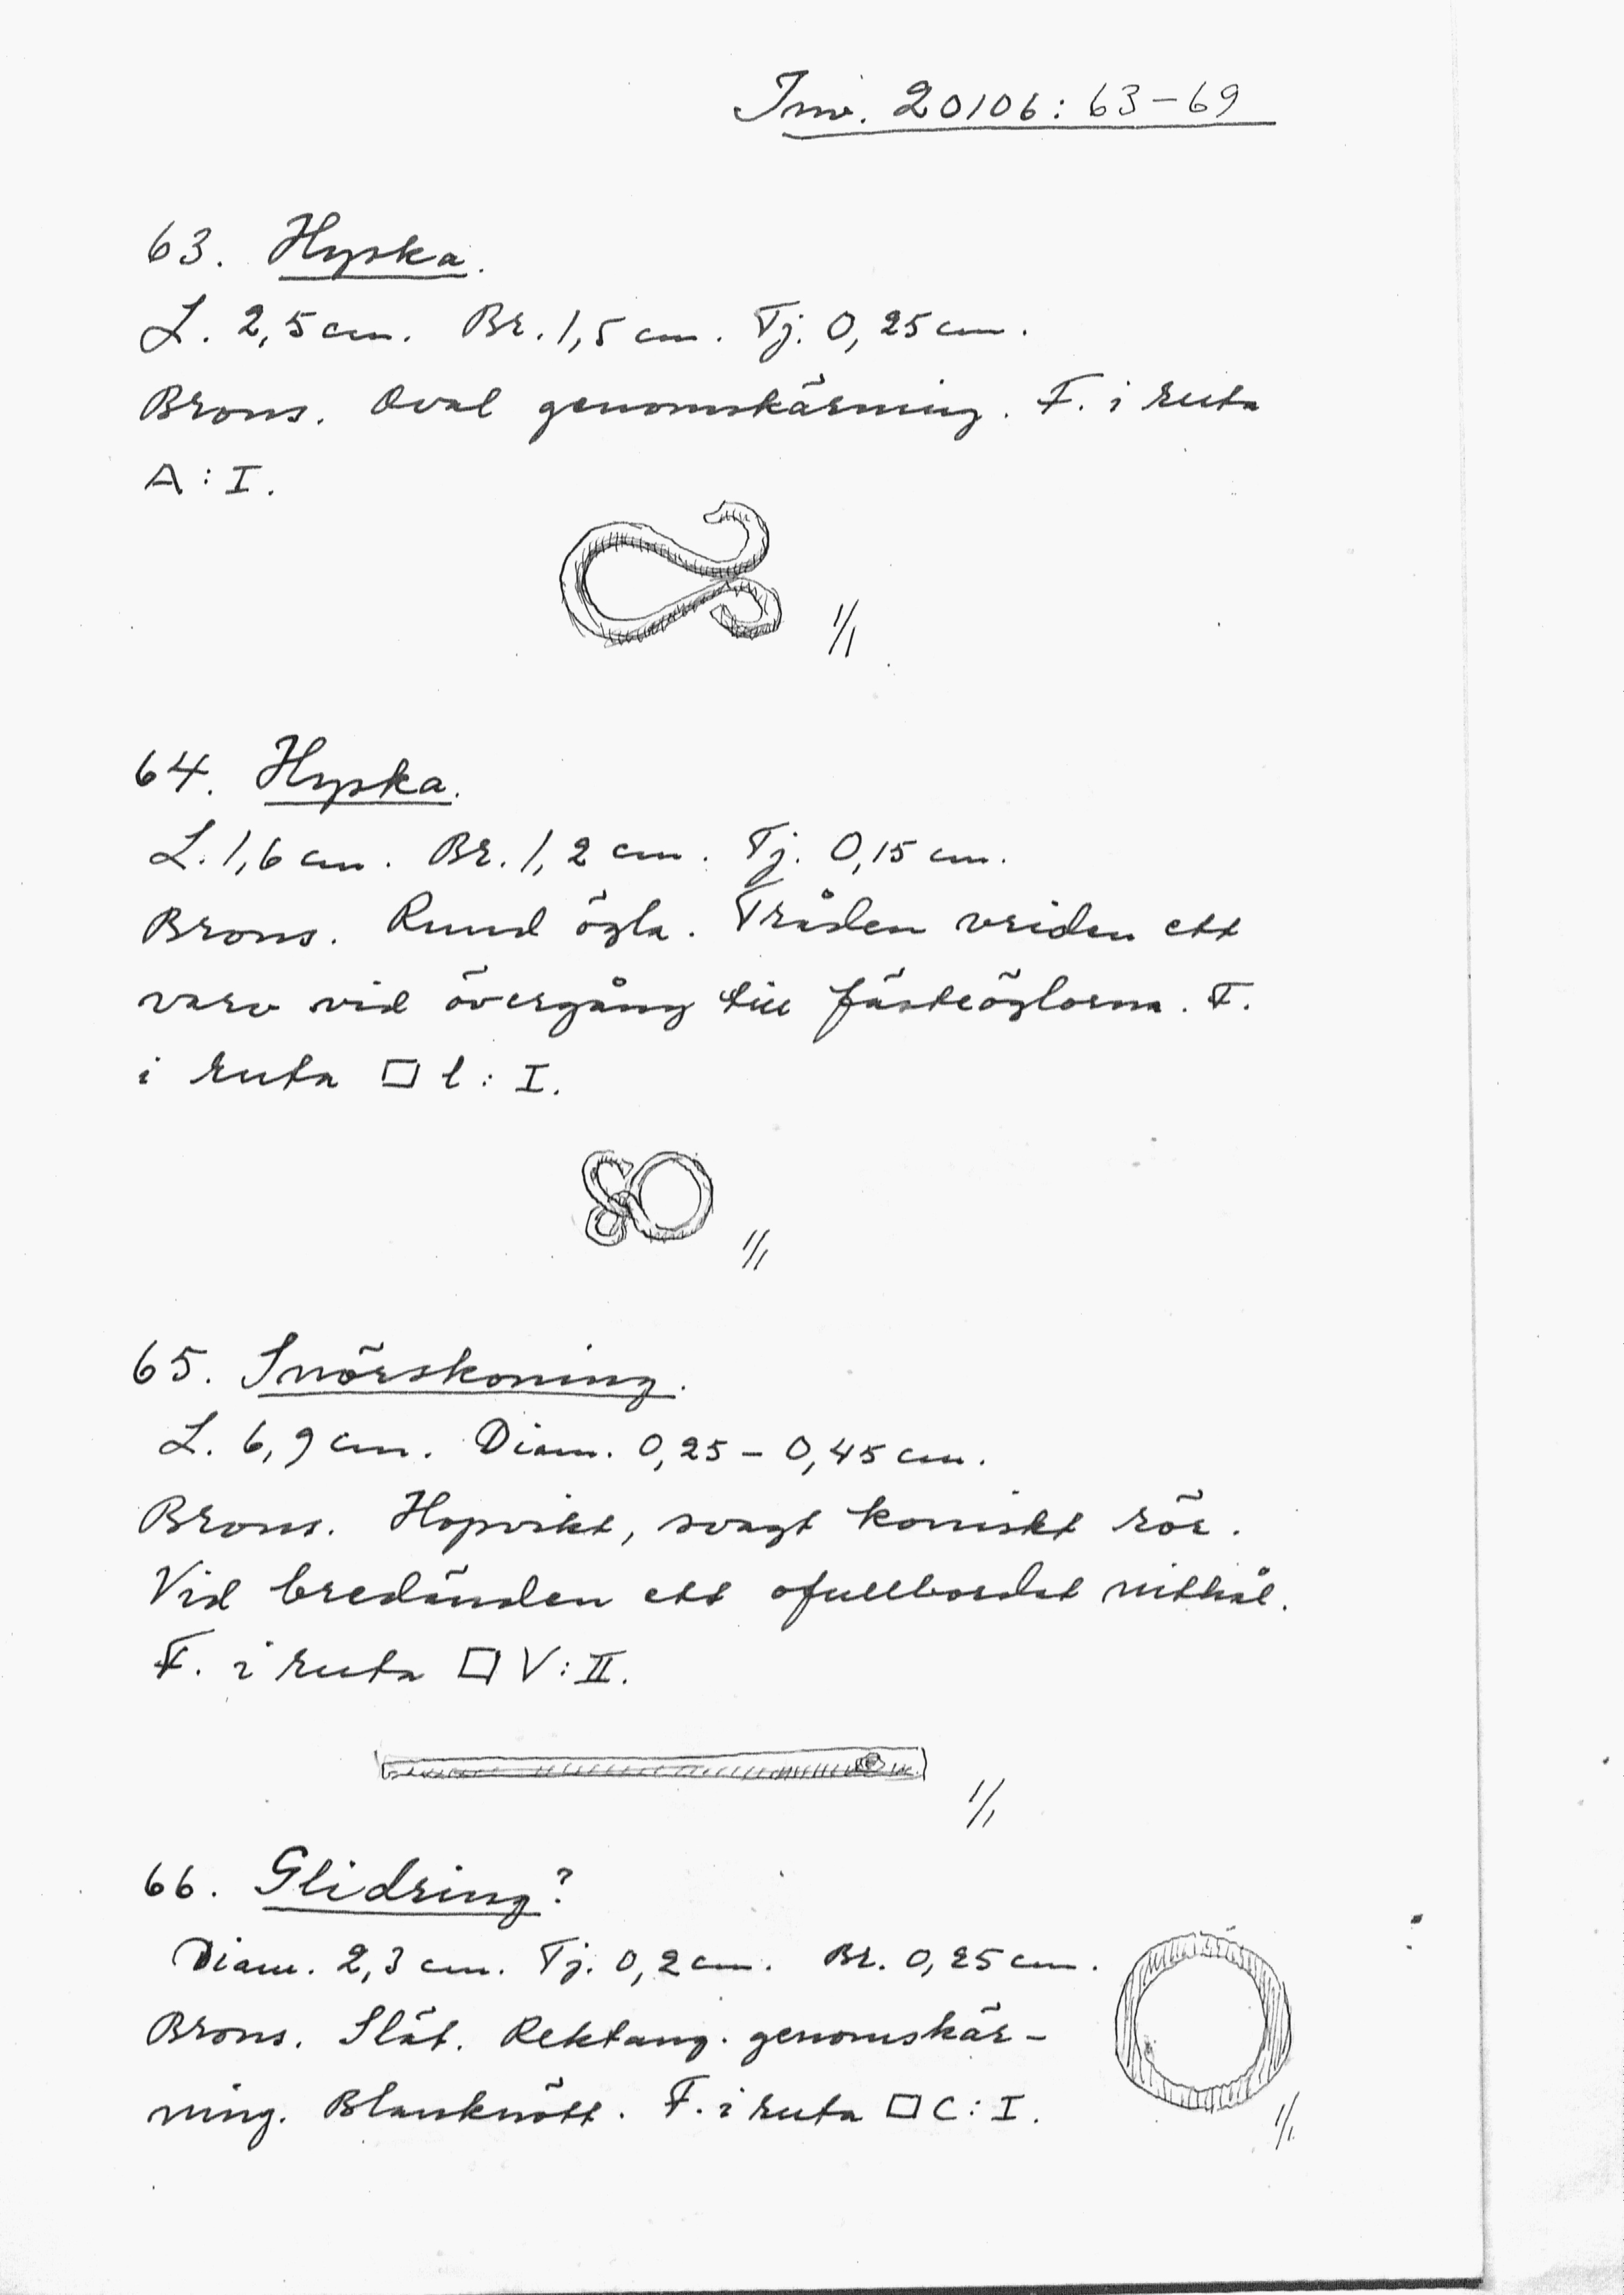 Inv. 20106: 63-69
63. Hyska.
L. 2,5 cm. Br. 1,5 cm. Tj. 0,25 cm.
Brons. Oval genomskärning. F. i ruta
A: I.
1/1
64. Hyska.
L. 1,6 cm. Br. 1,2 cm. Tj. 0,15 cm.
Brons. Rund ögla. Tråden vriden ett
varv vid övergång till fästeöglorna. F.
i ruta □ t: I.
1/1
65. Snörskoning.
L. 6,9 cm. Diam. 0,25 - 0,45 cm.
Brons. Hopvikt, svagt koniskt rör.
Vid bredänden ett ofullbordat nithål.
F. i ruta □ V: II.
1/1
66. Glidring?
Diam. 2,3 cm. Tj. 0,2 cm. Br. 0,25 cm.
Brons. Slät. Rektang. genomskär-
ning. Blanknött. F. i ruta □ C: I.
1/1